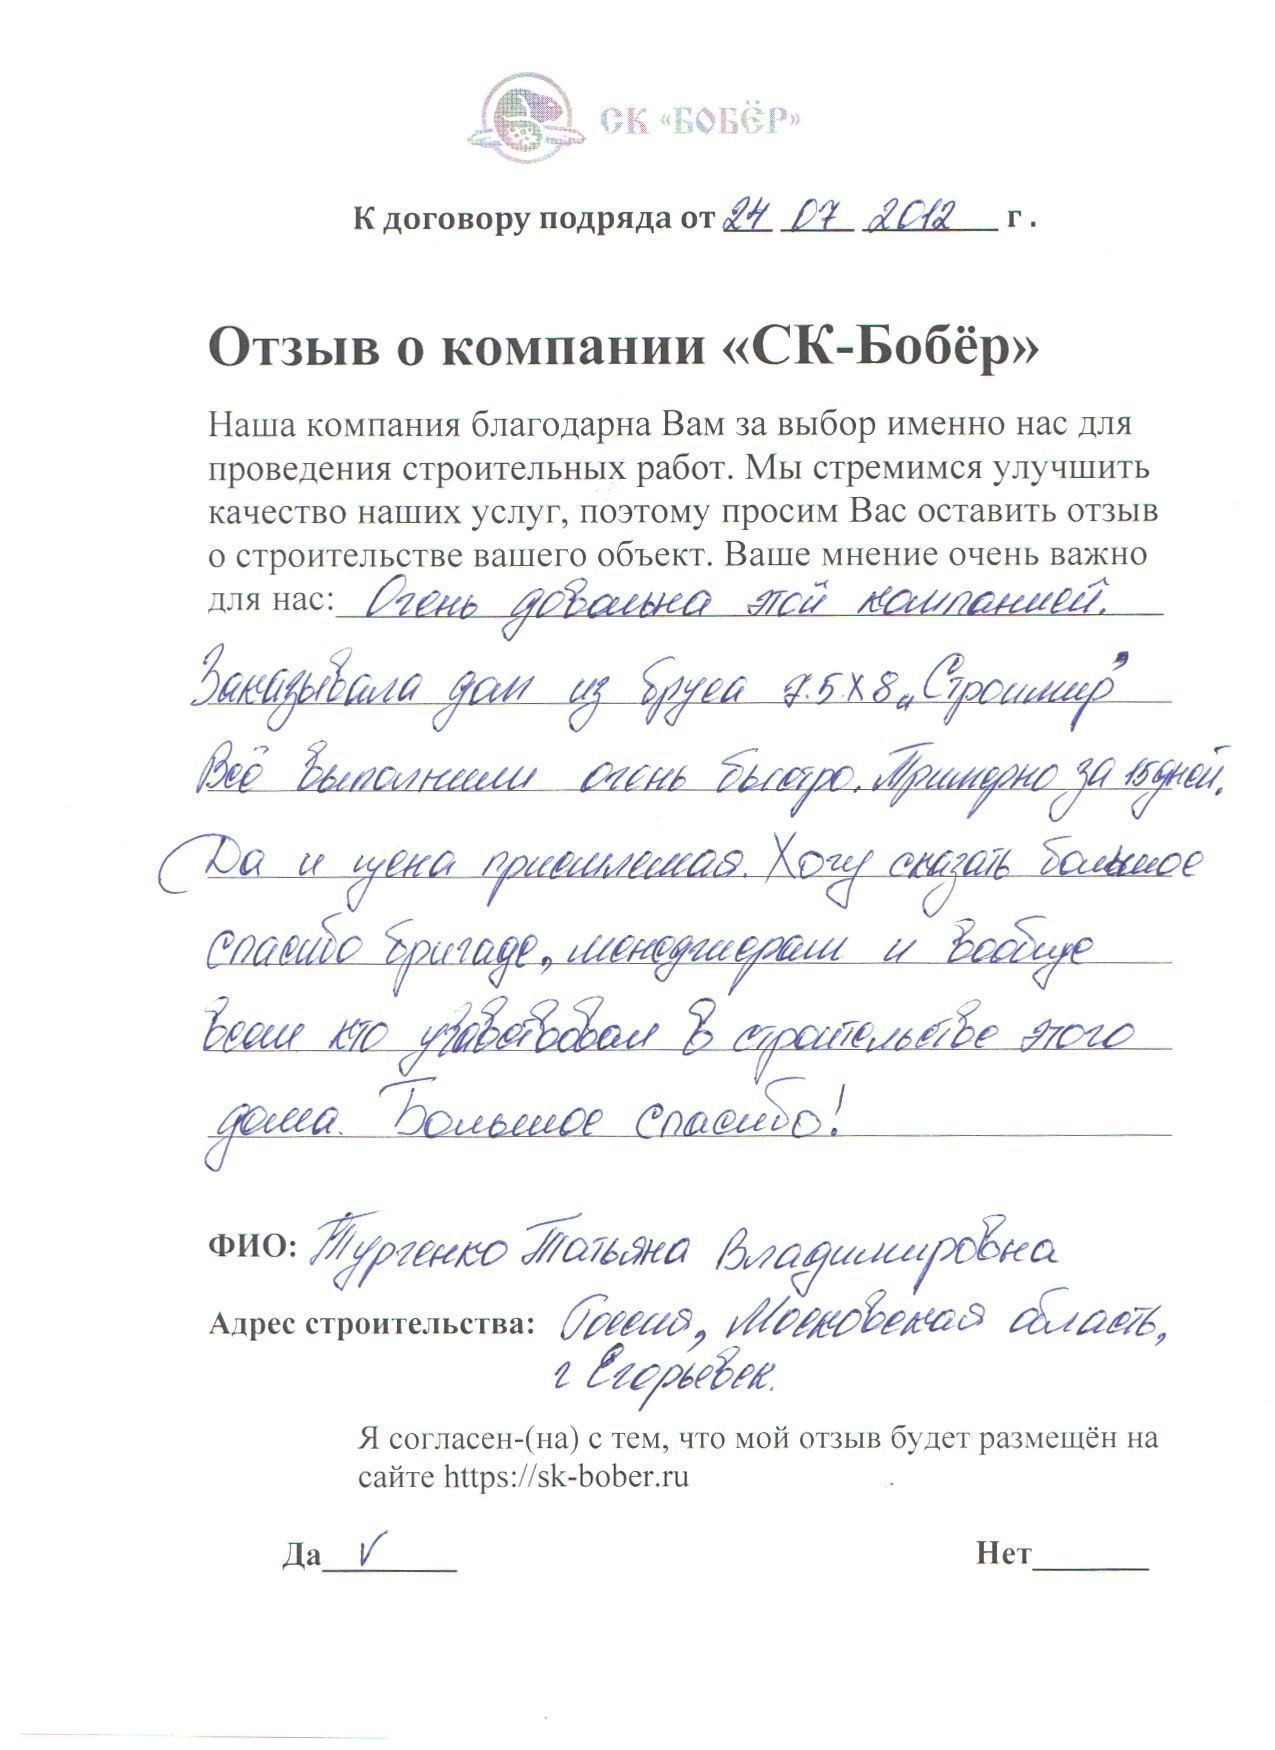 СК «БОБЁР»
К договору подряда от 24 07 2012 г .
Отзыв о компании «СК-Бобёр»
Наша компания благодарна Вам за выбор именно нас для
проведения строительных работ. Мы стремимся улучшить
качество наших услуг, поэтому просим Вас оставить отзыв
о строительстве вашего объект. Ваше мнение очень важно
для нас: Очень довольна этой компанией.
Заказывала дом из бруса 7.5х8 „Строимир"
Всё выполнили очень быстро. Примерно за 15 дней.
Да и цена приемлемая. Хочу сказать большое
спасибо бригаде, менеджерам и вообще
всем кто учавствовал в строительстве этого
дома. Большое спасибо!
ФИО: Турченко Татьяна Владимировна
Адрес строительства: Россия, Московская область,
г Егорьевск.
Я согласен-(на) с тем, что мой отзыв будет размещён на
сайте https://sk-bober.ru
Да V Нет